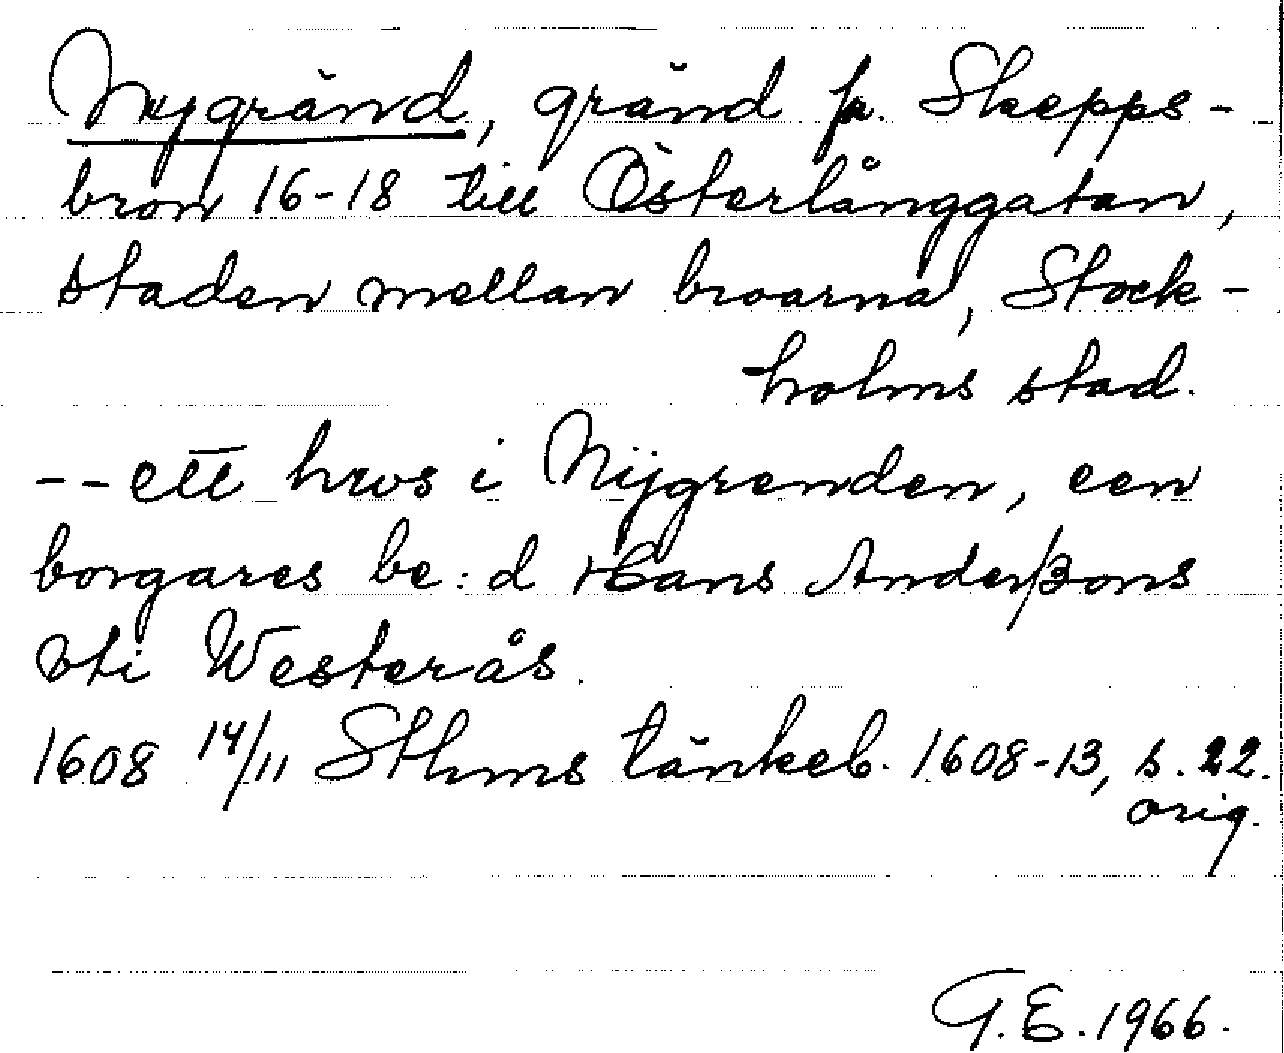 Nygränd, gränd fr. Skepps-
bron 16-18 till Österlånggatan,
staden mellan broarna, Stock-
holms stad.
-- ett hws i Nÿgrenden, een
borgares be:d Hans Anderßons
vti Westerås.
1608 14/11 Sthms tänkeb. 1608-13, s. 22.
orig.
G.E. 1966.